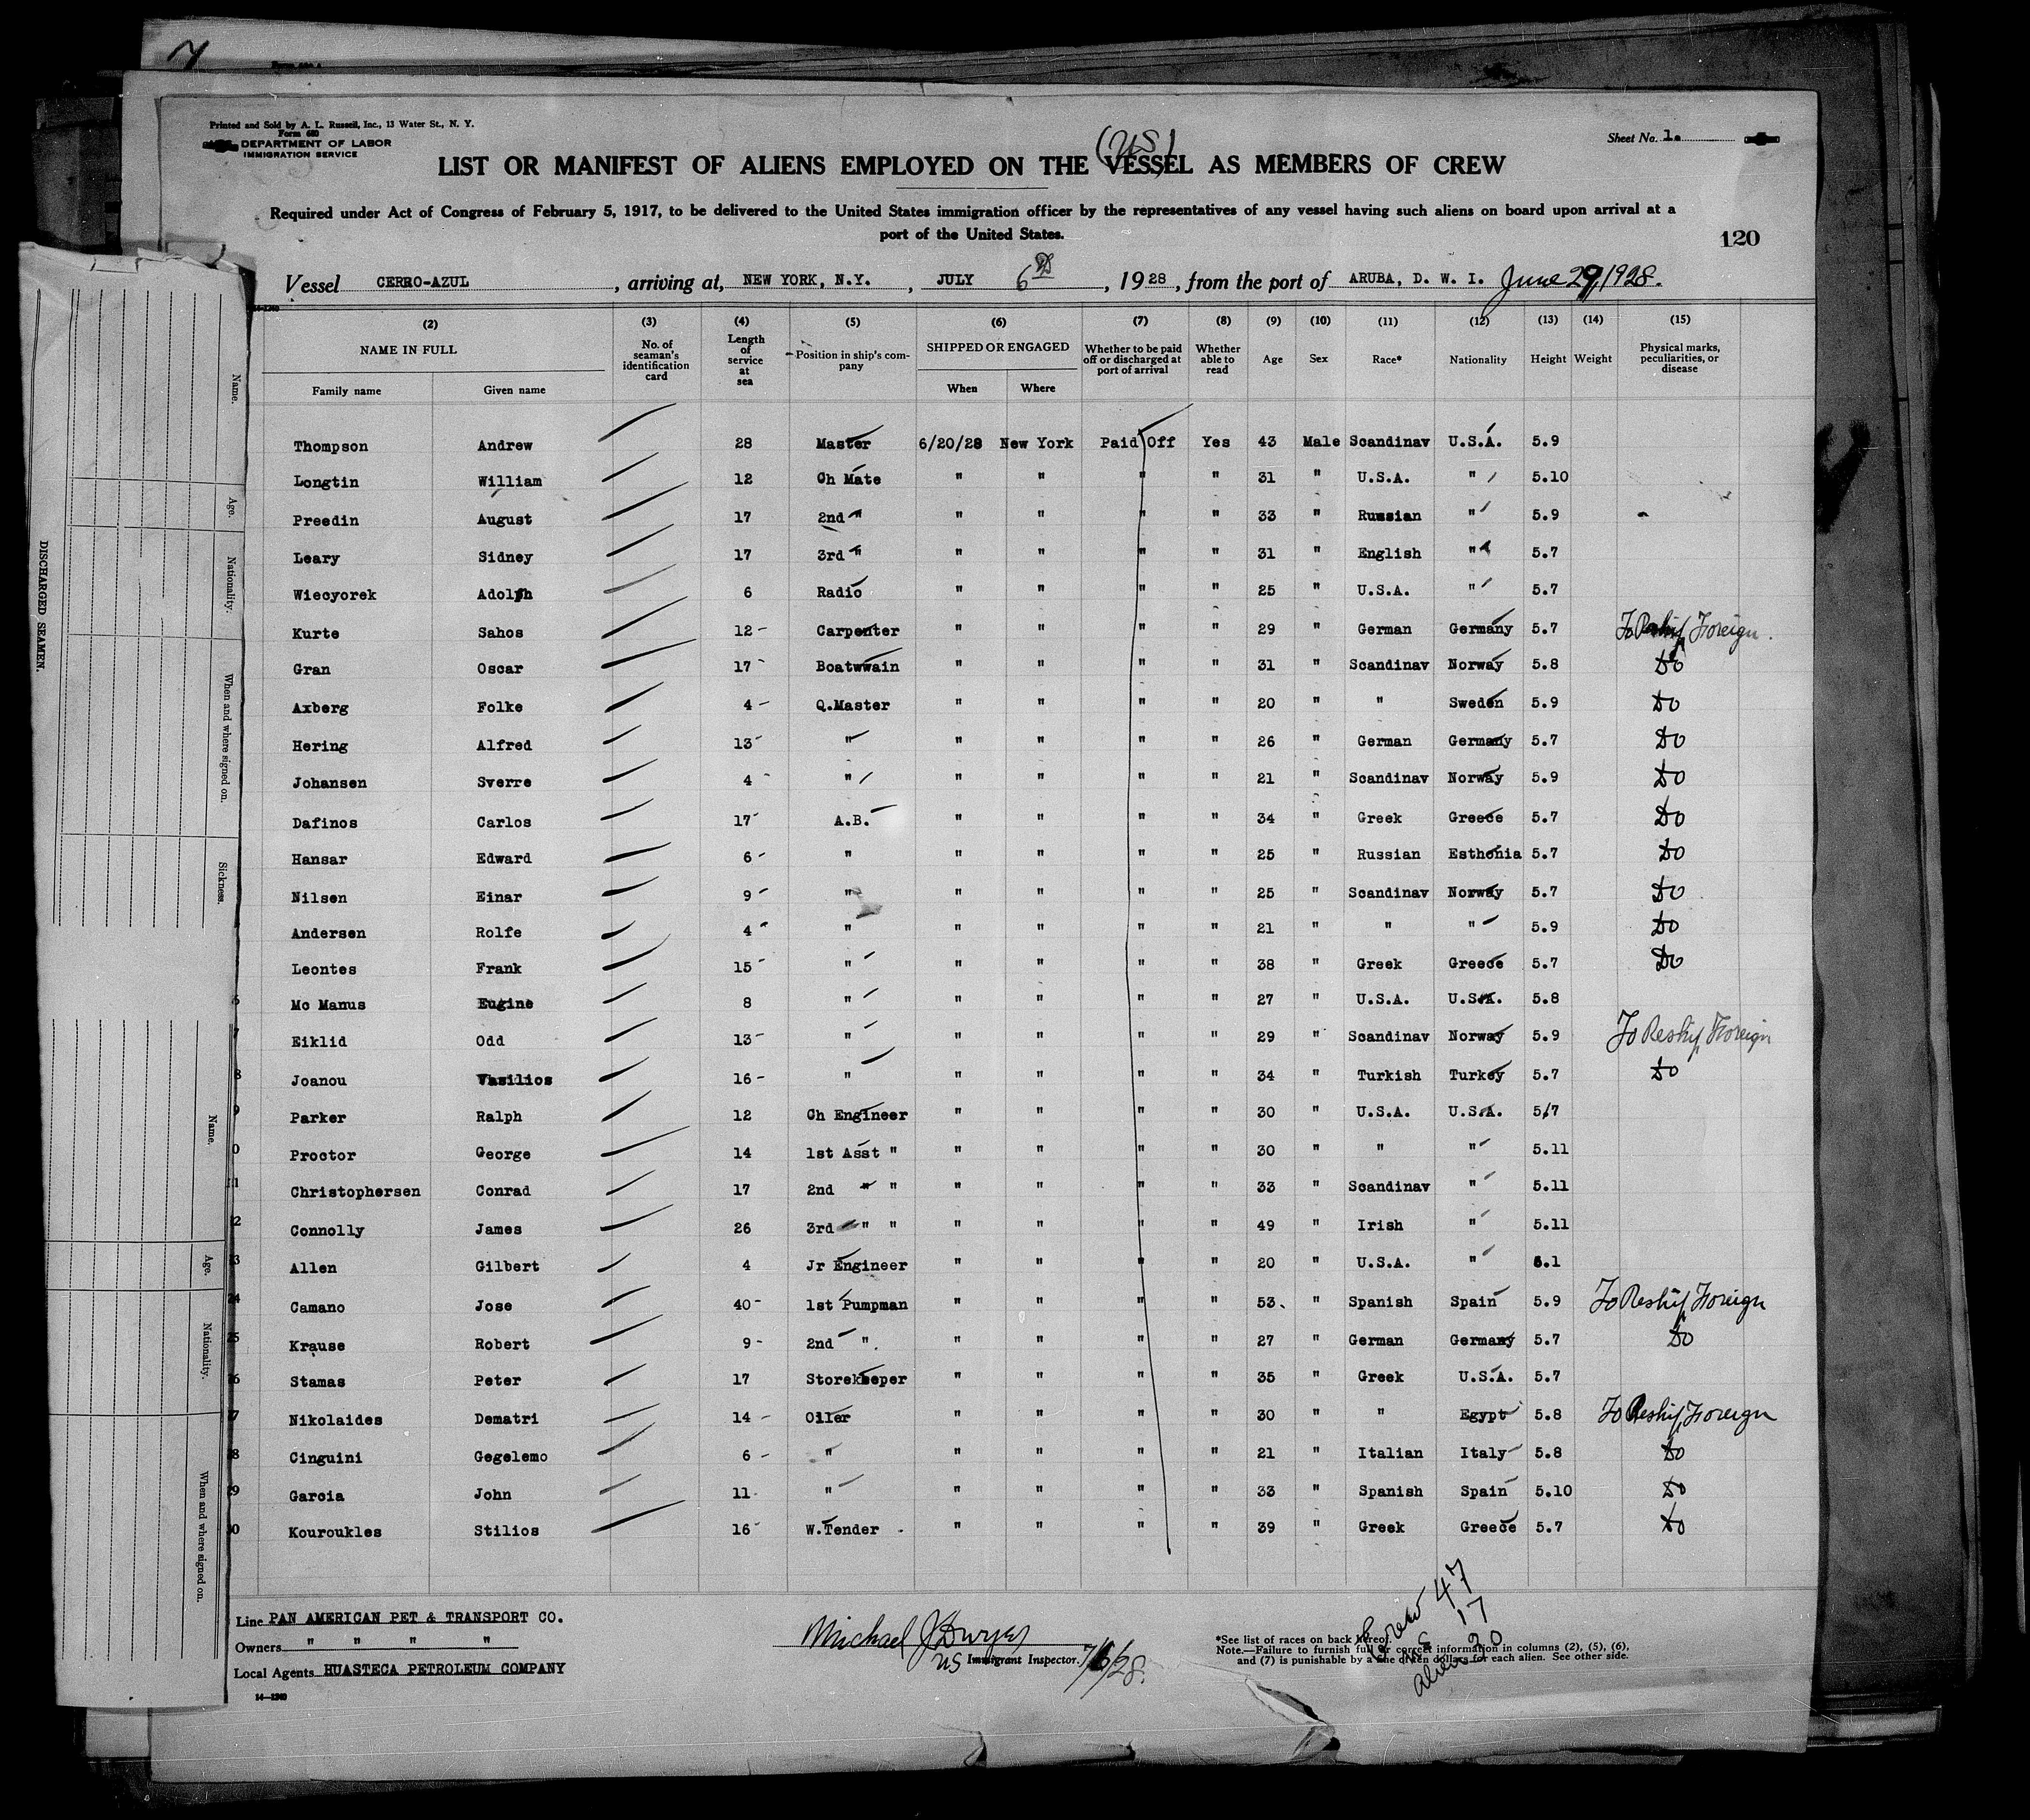 Printed and Sold by A. L. Russell, Inc., 13 Water St., N. Y.
Form 680
DEPARTMENT OF LABOR
IMMIGRATION SERVICE
Sheet No. 1.
(US)
LIST OR MANIFEST OF ALIENS EMPLOYED ON THE VESSEL AS MEMBERS OF CREW
Required under Act of Congress of February 5, 1917, to be delivered to the United States immigration officer by the representatives of any vessel having such aliens on board upon arrival at a
port of the United States.
120
Vessel CERRO-AZUL, arriving at, NEW YORK, N.Y., JULY 6th, 1928, from the port of ARUBA, D. W. I. June 29, 1928.
(2) (3) (4) (5) (6) (7) (8) (9) (10) (11) (12) (13) (14) (15)
NAME IN FULL No. of seaman's identification card Length of service at sea Position in ship's company SHIPPED OR ENGAGED Whether to be paid off or discharged at port of arrival Whether able to read Age Sex Race* Nationality Height Weight Physical marks, peculiarities, or disease
Family name Given name When Where
Thompson Andrew 28 Master 6/20/28 New York Paid Off Yes 43 Male Scandinav U.S.A. 5.9
Longtin William 12 Ch Mate " " " " 31 " U.S.A. " 5.10
Preedin August 17 2nd " " " " " 33 " Russian " 5.9
Leary Sidney 17 3rd " " " " " 31 " English " 5.7
Wiecyorek Adolph 6 Radio " " " " 25 " U.S.A. " 5.7
Kurte Sahos 12 Carpenter " " " " 29 " German Germany 5.7 To Reship Foreign.
Gran Oscar 17 Boatwwain " " " " 31 " Scandinav Norway 5.8 Do
Axberg Folke 4 Q.Master " " " " 20 " " Sweden 5.9 Do
Hering Alfred 13 " " " " " 26 " German Germany 5.7 Do
Johansen Sverre 4 " " " " " 21 " Scandinav Norway 5.9 Do
Dafinos Carlos 17 A.B. " " " " 34 " Greek Greece 5.7 Do
Hansar Edward 6 " " " " " 25 " Russian Esthonia 5.7 Do
Nilsen Einar 9 " " " " " 25 " Scandinav Norway 5.7 Do
Andersen Rolfe 4 " " " " " 21 " " " 5.9 Do
Leontes Frank 15 " " " " " 38 " Greek Greece 5.7 Do
6 Mc Manus Eugine 8 " " " " " 27 " U.S.A. U.S.A. 5.8
7 Eiklid Odd 13 " " " " " 29 " Scandinav Norway 5.9 To Reship Foreign
8 Joanou Vasilios 16 " " " " " 34 " Turkish Turkey 5.7 Do
9 Parker Ralph 12 Ch Engineer " " " " 30 " U.S.A. U.S.A. 5/7
0 Proctor George 14 1st Asst " " " " " 30 " " " 5.11
1 Christophersen Conrad 17 2nd " " " " " " 33 " Scandinav " 5.11
2 Connolly James 26 3rd " " " " " " 49 " Irish " 5.11
3 Allen Gilbert 4 Jr Engineer " " " " 20 " U.S.A. " 6.1
24 Camano Jose 40 1st Pumpman " " " " 53 " Spanish Spain 5.9 To Reship Foreign
25 Krause Robert 9 2nd " " " " " 27 " German Germany 5.7 Do
26 Stamas Peter 17 Storekeeper " " " " 35 " Greek U.S.A. 5.7
27 Nikolaides Dematri 14 Oiler " " " " 30 " " Egypt 5.8 To Reship Foreign
28 Cinguini Gegelemo 6 " " " " " 21 " Italian Italy 5.8 Do
29 Garcia John 11 " " " " " 33 " Spanish Spain 5.10 Do
30 Kouroukles Stilios 16 W.Tender " " " " 39 " Greek Greece 5.7 Do
Line PAN AMERICAN PET & TRANSPORT CO.
Owners " " " "
Local Agents HUASTECA PETROLEUM COMPANY
14—1240
Michael J Dwyer
US Immigrant Inspector. 7/6/28.
*See list of races on back hereof.
Note.—Failure to furnish full or correct information in columns (2), (5), (6),
and (7) is punishable by a fine of ten dollars for each alien. See other side.
Crew 47
US 17
Alien 30
DISCHARGED SEAMEN.
Name.
Age.
Nationality.
When and where signed on.
Sickness.
Name.
Age.
Nationality.
When and where signed on.